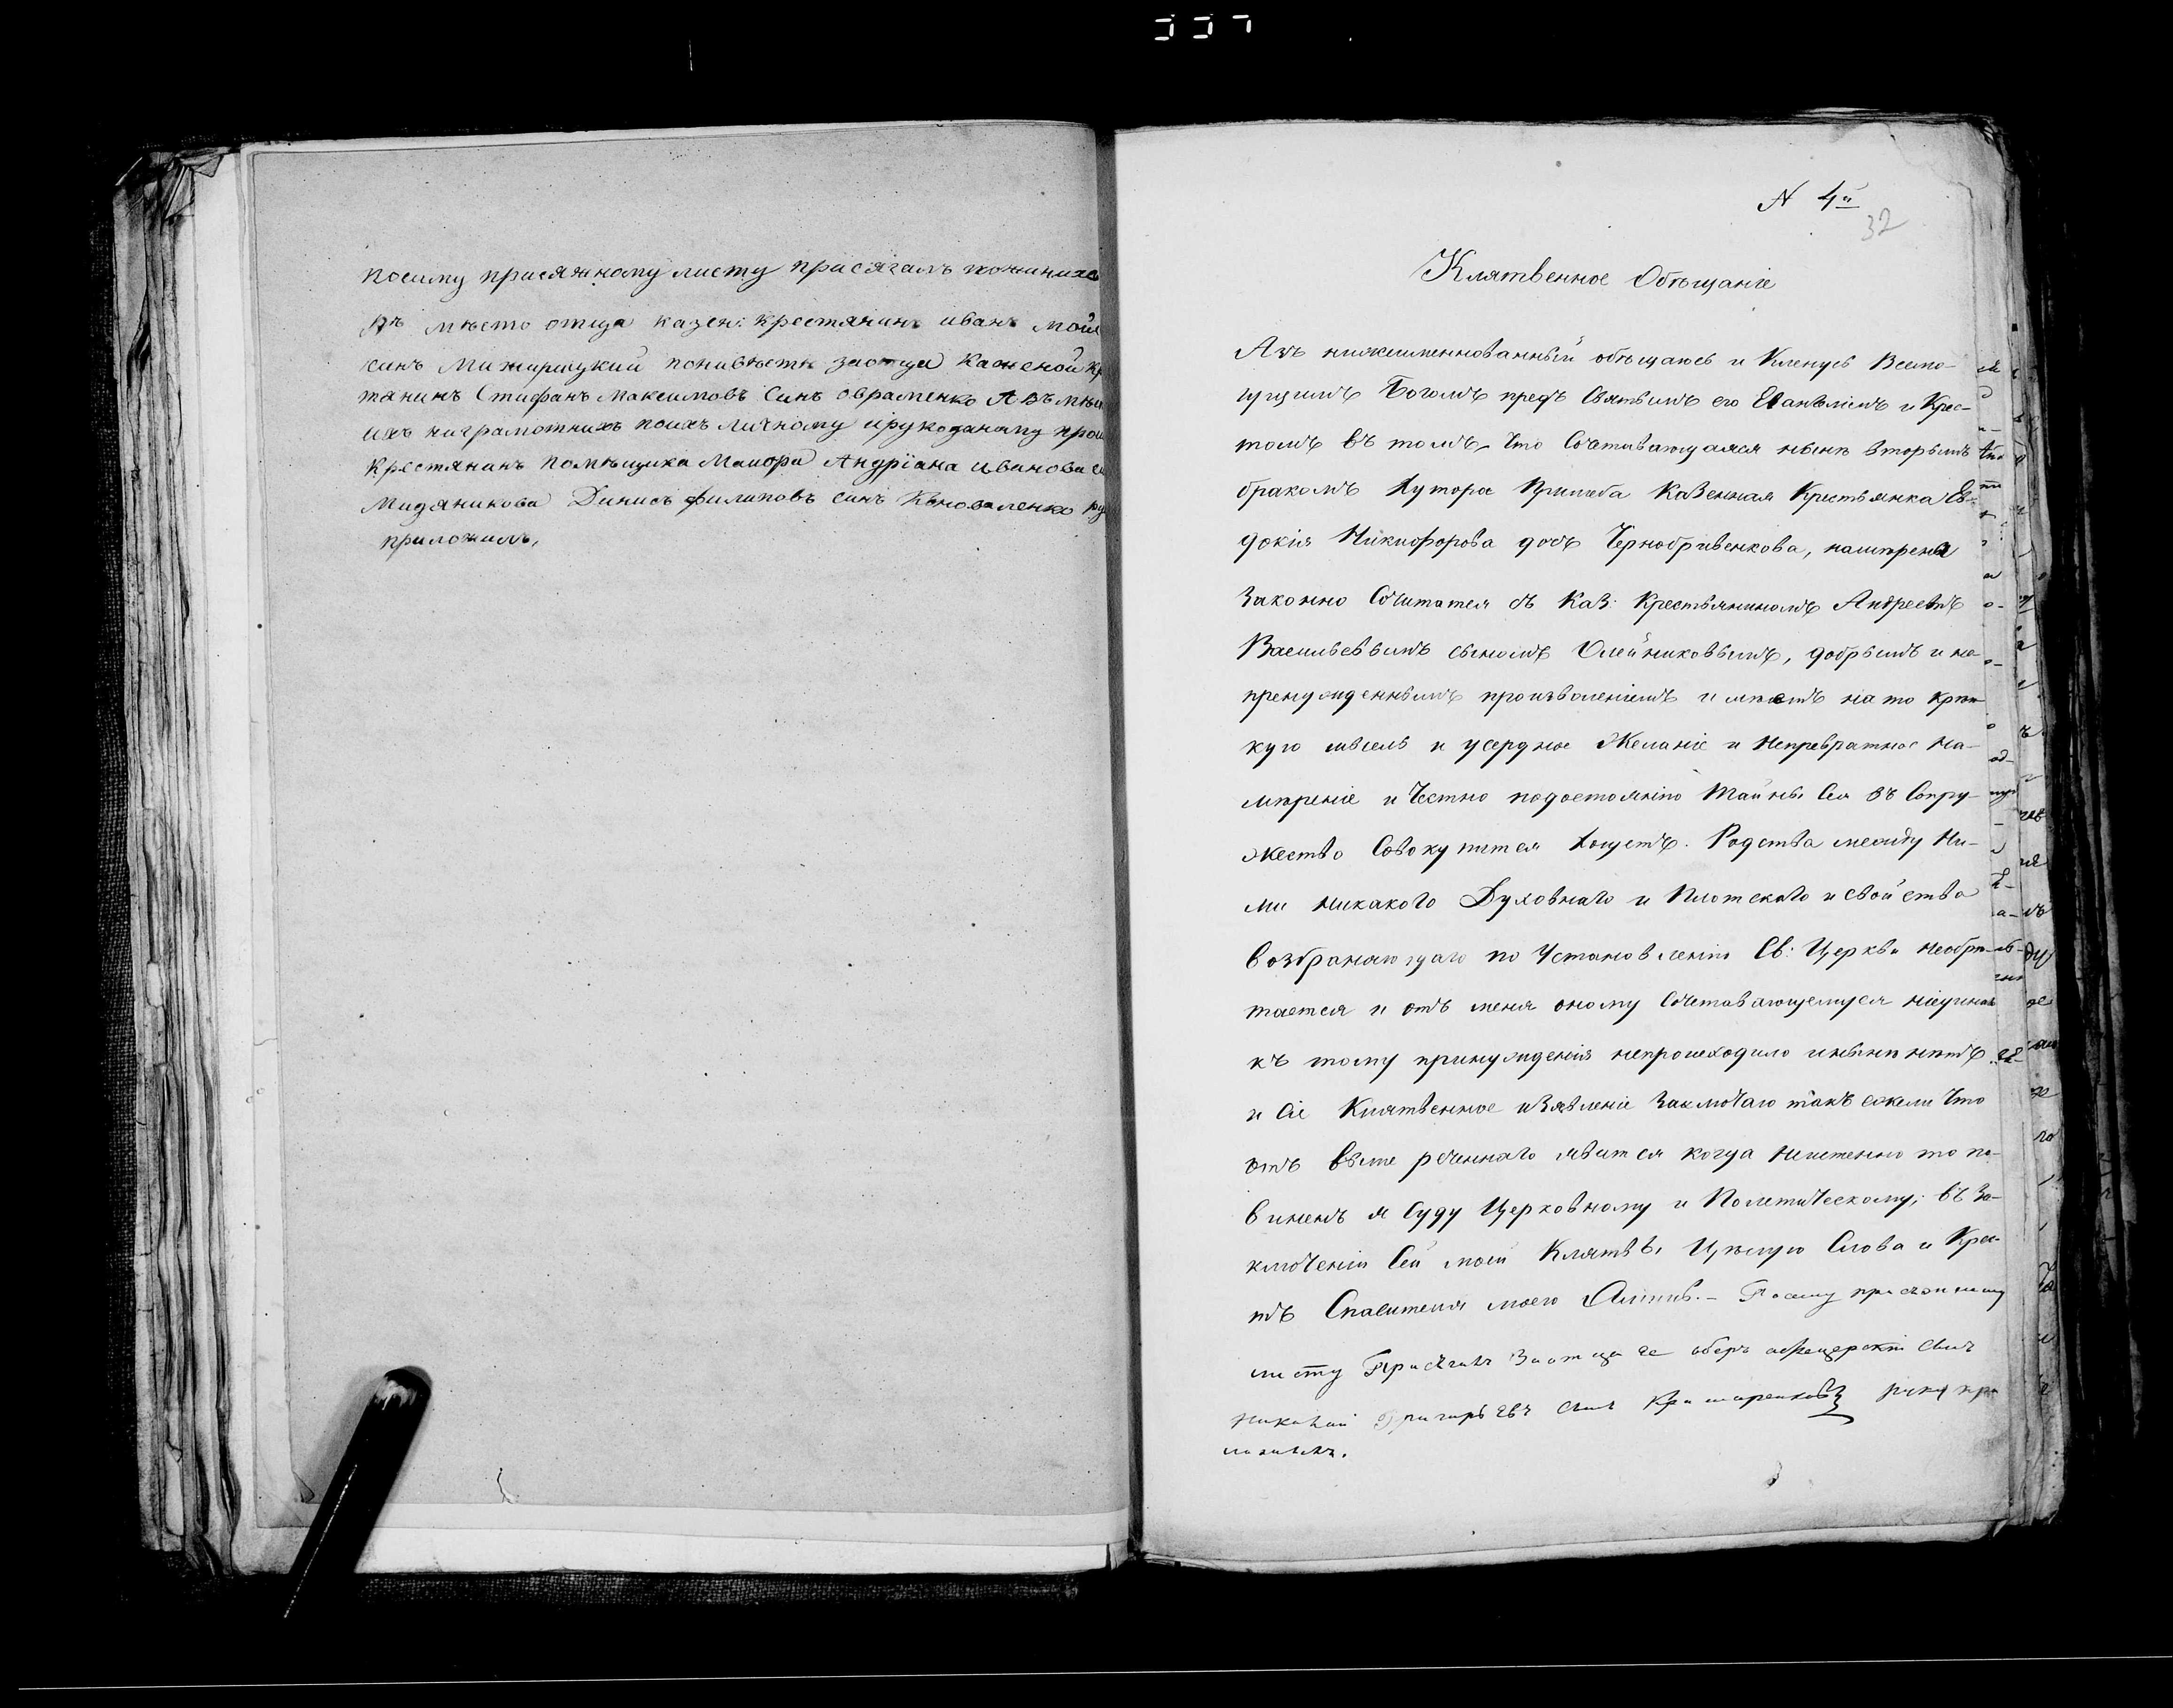 посиму присяжному листу присягалъ пожинихе
въ мѣсто отца казен: крестянинъ иванъ мои
синъ Мижирицкий понивѣсти заотца каженой кр
тянинъ Стифанъ Максимовъ Синъ овраменко А въ мѣс
ихъниграмотнихъ поихъ личному ирукоданому прош
крестянинъ помѣщика Маиора Андріана иванова с
Мидяникова Динисъ филиповъ синъ Коноваленко ру
приложилъ,
N 4й
32
Клятвенное Обѣщаніе
Азъ нижеименнованный обѣщаюсь и Кленусь Всемо-
гущимъ Богомъ предъ Святымъ его Еванъліемъ и Крес-
томъ въ томъ, что Сочетавающаяся нынѣ вторымъ
бракомъ хутора Пришиба Казенная Крестьянка Ев-
докія Никифорова дочь Чернобривенкова, намѣрена
Законно Сочитатся съ Каз: Крестьяниномъ Андреемъ
Васильевымъ сыномъ Олейниковымъ, добрымъ и не
пренужденнымъ произволеніемъ и мѣетъ на то крѣп
кую мысль и усердное Желаніе и Непревратное на-
мѣреніе и Честно подостоянію Тайны Сея въ Супру-
жество Совокупится хощетъ. Родства между Ни-
ми никакого Духовнаго и Плотскаго и свойства
возбраняющаго по Установленію Св: Церкви необрѣ-
тается и отъ меня оному Сочетавающемуся
къ тому принужденія непроисходило инынѣ нѣтъ
и Сіе Клятвенное изявленіе Заключаю такъ ежели что
отъ выше реченнаго явится когда неистенно то по-
виненъ я Суду Церковному и Политическому; въ За-
ключеніи Сей моей Клятвы Цѣлую Слова и Крес-
тъ Спасителя моего Аминь. - Посему присяжному
листу Присягалъ Заотца ее оберъ офецерскій Сынъ
Николай Григорьевъ Сынъ руку при
ложилъ.